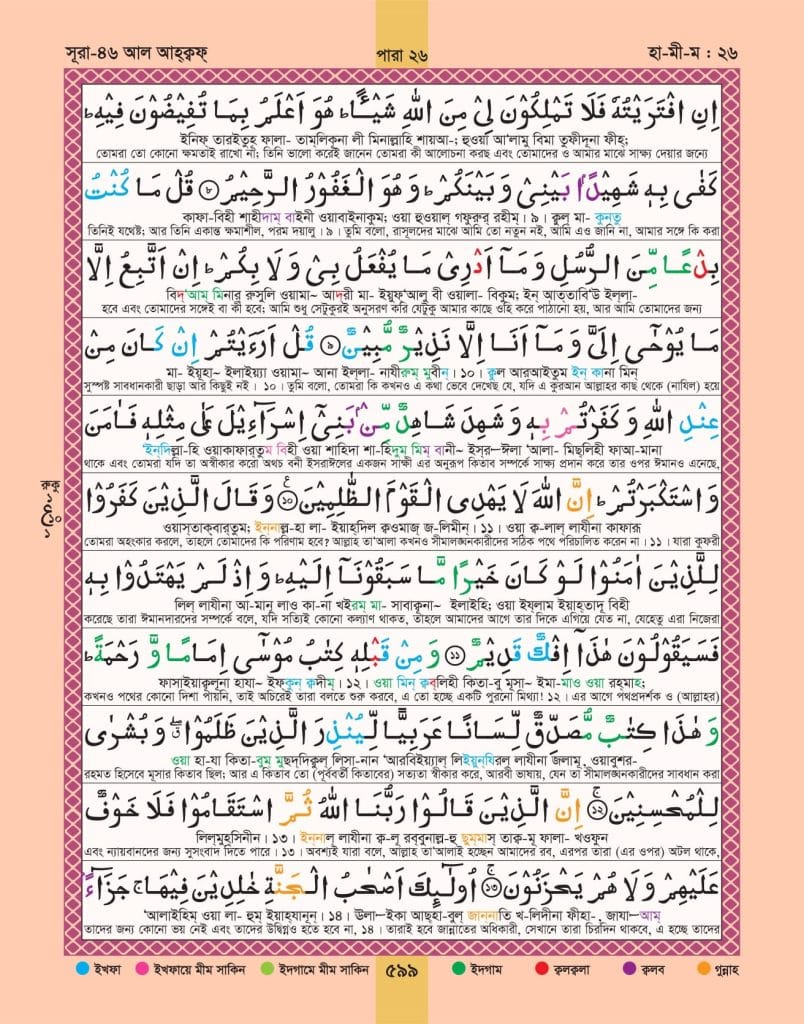 সূরা-৪৬ আল আহ্‌ক্বফ্
পারা ২৬
হা-মী-ম : ২৬
اِنِ افْتَرَيْتُهٗ فَلَا تَمْلِكُوْنَ لِيْ مِنَ اللّٰهِ شَيْـًٔا ؕ هُوَ اَعْلَمُ بِمَا تُفِيْضُوْنَ فِيْهِ ؕ
ইনিফ্ তারইতুহূ ফালা- তাম্‌লিকূনা লী মিনাল্লাহি শায়আ-; হুওয়া আ'লামু বিমা তুফীদূনা ফীহ্;
তোমরা তো কোনো ক্ষমতাই রাখো না; তিনি ভালো করেই জানেন তোমরা কী আলোচনা করছ এবং তোমাদের ও আমার মাঝে সাক্ষ্য দেয়ার জন্যে
كَفٰى بِهٖ شَهِيْدًۢا بَيْنِيْ وَبَيْنَكُمْ ؕ وَهُوَ الْغَفُوْرُ الرَّحِيْمُ ۝٨ قُلْ مَا كُنْتُ
কাফা-বিহী শাহীদাম্ বাইনী ওয়াবাইনাকুম; ওয়া হুওয়াল্ গফূরুর্ রহীম্। ৯। ক্বুল্ মা- কুনতু
তিনিই যথেষ্ট; আর তিনি একান্ত ক্ষমাশীল, পরম দয়ালু। ৯। তুমি বলো, রাসূলদের মাঝে আমি তো নতুন নই, আমি এও জানি না, আমার সঙ্গে কি করা
بِدْعًا مِّنَ الرُّسُلِ وَمَاۤ اَدْرِيْ مَا يُفْعَلُ بِيْ وَلَا بِكُمْ ؕ اِنْ اَتَّبِعُ اِلَّا
বিদ্‌'আম্ মিনার্ রুসুলি ওয়ামা~ আদ্‌রী মা- ইয়ুফ্'আলু বী ওয়ালা- বিকুম; ইন্ আত্তাবি'উ ইল্লা-
হবে এবং তোমাদের সঙ্গেই বা কী হবে; আমি শুধু সেটুকুরই অনুসরণ করি যেটুকু আমার কাছে ওহি করে পাঠানো হয়, আর আমি তোমাদের জন্য
مَا يُوْحٰۤى اِلَيَّ وَمَاۤ اَنَا اِلَّا نَذِيْرٌ مُّبِيْنٌ ۝٩ قُلْ اَرَءَيْتُمْ اِنْ كَانَ مِنْ
মা- ইয়ূহা~ ইলাইয়্যা ওয়ামা~ আনা ইল্লা- নাযীরুম্ মুবীন্। ১০। ক্বুল আরআইতুম ইন্ কানা মিন্
সুস্পষ্ট সাবধানকারী ছাড়া আর কিছুই নই। ১০। তুমি বলো, তোমরা কি কখনও এ কথা ভেবে দেখেছ যে, যদি এ কুরআন আল্লাহর কাছ থেকে (নাযিল) হয়ে
عِنْدِ اللّٰهِ وَكَفَرْتُمْ بِهٖ وَشَهِدَ شَاهِدٌ مِّنْۢ بَنِيْۤ اِسْرَآءِيْلَ عَلٰى مِثْلِهٖ فَاٰمَنَ
'ইন্‌দিল্লা-হি ওয়াকাফারতুম বিহী ওয়া শাহিদা শা-হিদুম্ মিম্ বানী~ ইস্‌র-ঈলা 'আলা- মিছ্‌লিহী ফাআ-মানা
থাকে এবং তোমরা যদি তা অস্বীকার করো অথচ বনী ইসরাঈলের একজন সাক্ষী এর অনুরূপ কিতাব সম্পর্কে সাক্ষ্য প্রদান করে তার ওপর ঈমানও এনেছে,
وَاسْتَكْبَرْتُمْ ؕ اِنَّ اللّٰهَ لَا يَهْدِى الْقَوْمَ الظّٰلِمِيْنَ ۝١٠ وَقَالَ الَّذِيْنَ كَفَرُوْا
রুকু
ওয়াস্‌তাক্‌বার্‌তুম; ইন্‌নাল্ল-হা লা- ইয়াহ্‌দিল ক্বওমাজ্ জ-লিমীন্। ১১। ওয়া ক্ব-লাল্ লাযীনা কাফারূ
তোমরা অহংকার করলে, তাহলে তোমাদের কি পরিণাম হবে? আল্লাহ তা'আলা কখনও সীমালঙ্ঘনকারীদের সঠিক পথে পরিচালিত করেন না। ১১। যারা কুফরী
لِلَّذِيْنَ اٰمَنُوْا لَوْ كَانَ خَيْرًا مَّا سَبَقُوْنَاۤ اِلَيْهِ ؕ وَاِذْ لَمْ يَهْتَدُوْا بِهٖ
লিল্ লাযীনা আ-মানূ লাও কা-না খইরম্ মা- সাবাকূনা~ ইলাইহি; ওয়া ইয্‌লাম ইয়াহ্‌তাদূ বিহী
করেছে তারা ঈমানদারদের সম্পর্কে বলে, যদি সত্যিই কোনো কল্যাণ থাকত, তাহলে আমাদের আগে তার দিকে এগিয়ে যেত না, যেহেতু এরা নিজেরা
فَسَيَقُوْلُوْنَ هٰذَاۤ اِفْكٌ قَدِيْمٌ ۝١١ وَمِنْ قَبْلِهٖ كِتٰبُ مُوْسٰۤى اِمَامًا وَّرَحْمَةً ؕ
ফাসাইয়াকূলূনা হাযা~ ইফ্‌কুন্ ক্বদীম্। ১২। ওয়া মিন্ ক্ববলিহী কিতা-বু মূসা~ ইমা-মাও ওয়া রহ্‌মাহ্;
কখনও পথের কোনো দিশা পায়নি, তাই অচিরেই তারা বলতে শুরু করবে, এ তো হচ্ছে একটি পুরনো মিথ্যা! ১২। এর আগে পথপ্রদর্শক ও (আল্লাহর)
وَهٰذَا كِتٰبٌ مُّصَدِّقٌ لِّسَانًا عَرَبِيًّا لِّيُنْذِرَ الَّذِيْنَ ظَلَمُوْا ۖۗ وَبُشْرٰى
ওয়া হা-যা কিতা-বুম্ মুছদ্‌দিক্বুল্ লিসা-নান 'আরবিইয়্যাল্ লিইয়ুনযিরল্ লাযীনা জলামূ, ওয়াবুশর-
রহমত হিসেবে মূসার কিতাব ছিল; আর এ কিতাব তো (পূর্ববর্তী কিতাবের) সত্যতা স্বীকার করে, আরবী ভাষায়, যেন তা সীমালঙ্ঘনকারীদের সাবধান করা
لِلْمُحْسِنِيْنَ ۝١٢ اِنَّ الَّذِيْنَ قَالُوْا رَبُّنَا اللّٰهُ ثُمَّ اسْتَقَامُوْا فَلَا خَوْفٌ
লিল্‌মুহ্‌সিনীন। ১৩। ইন্‌নাল্ লাযীনা ক্ব-লূ রব্‌বুনাল্ল-হু ছুম্‌মাস্ তাক্ব-মূ ফালা- খওফুন
এবং ন্যায়বানদের জন্য সুসংবাদ দিতে পারে। ১৩। অবশ্যই যারা বলে, আল্লাহ তা'আলাই হচ্ছেন আমাদের রব, এরপর তারা (এর ওপর) অটল থাকে,
عَلَيْهِمْ وَلَا هُمْ يَحْزَنُوْنَ ۝١٣ اُولٰٓئِكَ اَصْحٰبُ الْجَنَّةِ خٰلِدِيْنَ فِيْهَا ۚ جَزَآءًۢ
'আলাইহিম্ ওয়া লা- হুম্ ইয়াহ্‌যানূন্। ১৪। উলা-ইকা আছ্‌হা-বুল্ জান্‌নাতি খ-লিদীনা ফীহা-, জাযা-আম্
তাদের জন্য কোনো ভয় নেই এবং তাদের উদ্বিগ্নও হতে হবে না, ১৪। তারাই হবে জান্নাতের অধিকারী, সেখানে তারা চিরদিন থাকবে, এ হচ্ছে তাদের
ইখফা ইখফায়ে মীম সাকিন ইদগামে মীম সাকিন ৫৯৯ ইদগাম ক্বলক্বলা ক্বলব গুন্নাহ